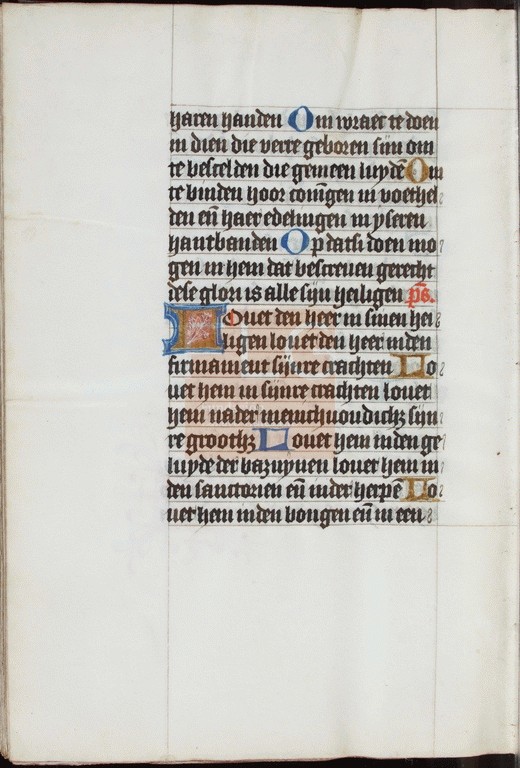 haren handen Om wraec te doen
in dien die verre geboren sijn om
te bescelden die gemeen luydē Om
te binden hoor coningen in voethel
den eñ haer edelingen in yseren
hantbanden Op datsi doen mo
gen in hem dat bescreuen gerecht
dese glori is alle sijn heiligen ps.
Louet den heer in sinen hei
ligen louet den heer inden
firmament sijnre crachten Lo
uet hem in sijnre crachten louet
hem nader menichuoudichz sijn
re groothz Louet hem inden ge
luyde der bazuynen louet hem in
den sanctorien eñ inder herpē Lo
uet hem inden bongen eñ in een